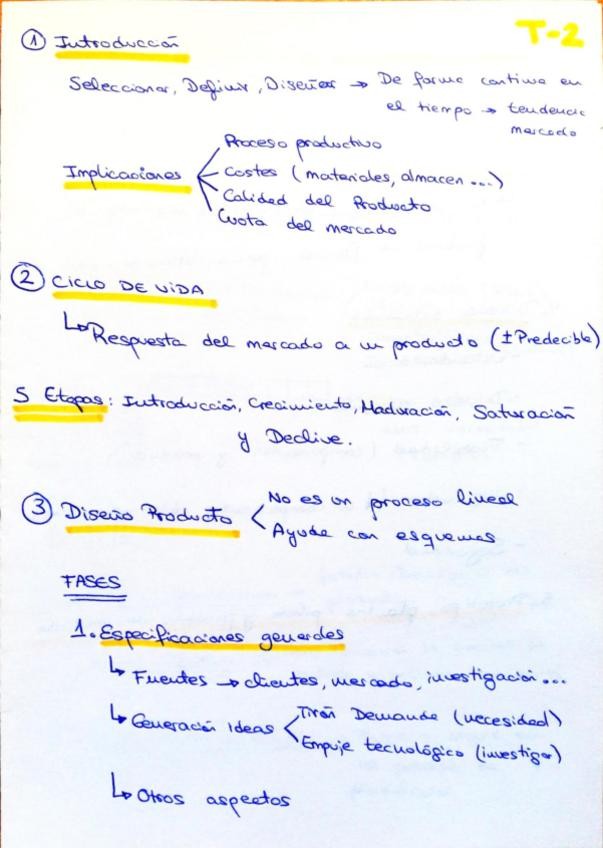 T-2
① Introducción
Seleccionar, Definir, Diseñar → De forma continua en
el tiempo → tendencia
mercado
Implicaciones
Proceso productivo
Costes (materiales, almacen...)
Calidad del Producto
Cuota del mercado
② CICLO DE VIDA
↳ Respuesta del mercado a un producto (± Predecible)
5 Etapas: Introducción, Crecimiento, Maduración, Saturación
y Declive.
③ Diseño Producto
No es un proceso lineal
Ayuda con esquemas
FASES
1. Especificaciones generales
↳ Fuentes → clientes, mercado, investigación...
↳ Generación Ideas
Tirón Demanda (necesidad)
Empuje tecnológico (investigar)
↳ Otros aspectos